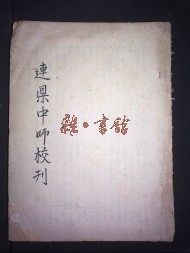 連県中師校刊
雅·書館